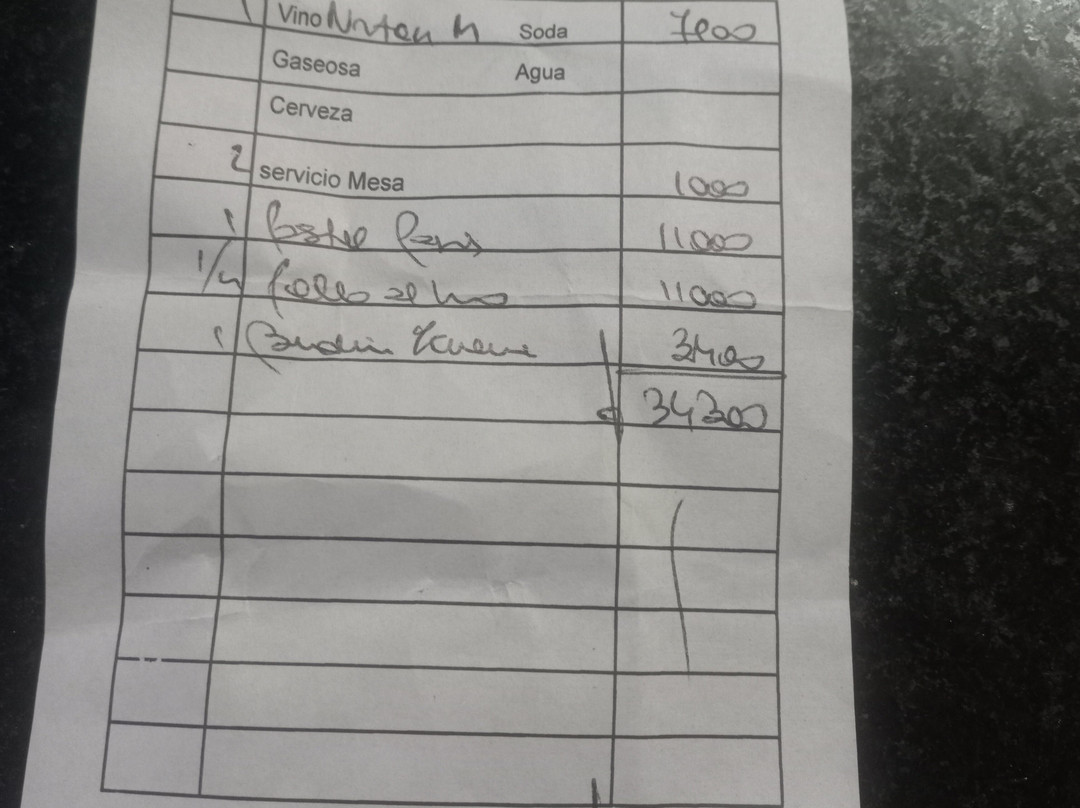 1 Vino Norton M Soda 7900
Gaseosa Agua
Cerveza
2 servicio Mesa 1000
1 11000
1/4 Pollo al 11000
1 Budin 3400
34300